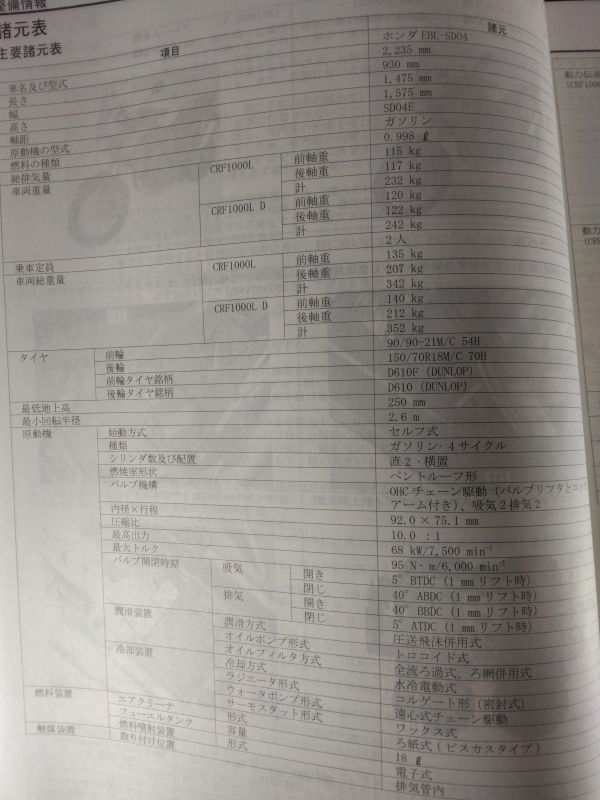 整備情報
諸元表
主要諸元表
項目 諸元
車名及び型式 ホンダ EBL-SD04
長さ 2,235 mm
幅 930 mm
高さ 1,475 mm
軸距 1,575 mm
原動機の型式 SD04E
燃料の種類 ガソリン
総排気量 0.998 ℓ
車両重量 CRF1000L 前軸重 115 kg
後軸重 117 kg
計 232 kg
CRF1000L D 前軸重 120 kg
後軸重 122 kg
計 242 kg
乗車定員 2 人
車両総重量 CRF1000L 前軸重 135 kg
後軸重 207 kg
計 342 kg
CRF1000L D 前軸重 140 kg
後軸重 212 kg
計 352 kg
タイヤ 前輪 90/90-21M/C 54H
後輪 150/70R18M/C 70H
前輪タイヤ銘柄 D610F (DUNLOP)
後輪タイヤ銘柄 D610 (DUNLOP)
最低地上高 250 mm
最小回転半径 2.6 m
原動機 始動方式 セルフ式
種類 ガソリン・4サイクル
シリンダ数及び配置 直2・横置
燃焼室形状 ペントルーフ形
バルブ機構 OHC チェーン駆動 (バルブリフタとロッ
アーム付き)、吸気2排気2
内径×行程 92.0 × 75.1 mm
圧縮比 10.0 : 1
最高出力 68 kW/7,500 min⁻¹
最大トルク 95 N・m/6,000 min⁻¹
バルブ開閉時期 吸気 開き 5° BTDC (1 mm リフト時)
閉じ 40° ABDC (1 mm リフト時)
排気 開き 40° BBDC (1 mm リフト時)
閉じ 5° ATDC (1 mm リフト時)
潤滑装置 潤滑方式 圧送飛沫併用式
オイルポンプ形式 トロコイド式
オイルフィルタ方式 全流ろ過式、ろ網併用式
冷却装置 冷却方式 水冷電動式
ラジエータ形式 コルゲート形 (密封式)
ウォータポンプ形式 遠心式チェーン駆動
サーモスタット形式 ワックス式
燃料装置 エアクリーナ 形式 ろ紙式 (ビスカスタイプ)
フューエルタンク 容量 18 ℓ
燃料噴射装置 形式 電子式
触媒装置 取り付け位置 排気管内
動力伝達
(CRF1000
動力
(CRF